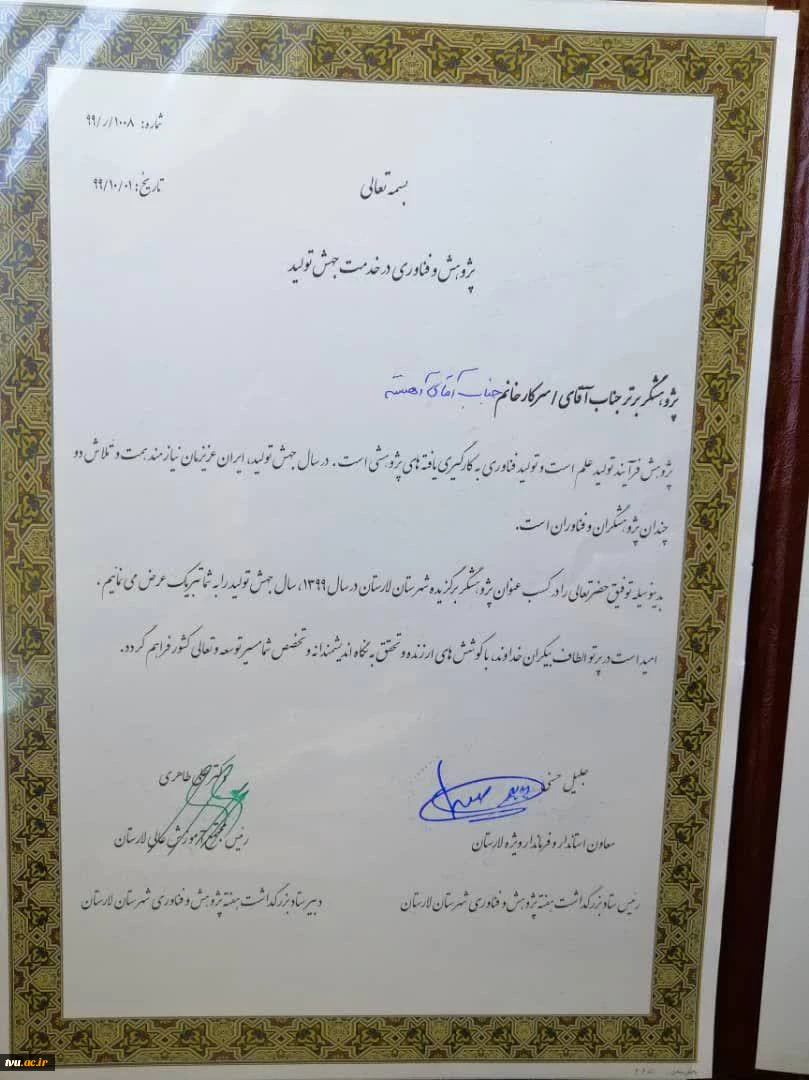 شماره: ۱۰۰۸/ر/۹۹
تاریخ: ۹۹/۱۰/۰۱
بسمه تعالی
پژوهش و فناوری در خدمت جهش تولید
پژوهشگر برتر جناب آقای / سرکار خانم جناب آقای آهسته
پژوهش فرآیند تولید علم است و تولید فناوری به کارگیری یافته های پژوهشی است. در سال جهش تولید، ایران عزیزمان نیازمند همت و تلاش دو
چندان پژوهشگران و فناوران است.
بدینوسیله توفیق حضرتعالی را در کسب عنوان پژوهشگر برگزیده شهرستان لارستان در سال ۱۳۹۹، سال جهش تولید را به شما تبریک عرض می نمائیم.
امید است در پرتو الطاف بیکران خداوند، با کوشش های ارزنده و تحقق به نگاه اندیشمندانه و تخصص شما مسیر توسعه و تعالی کشور فراهم گردد.
جلیل حسنی
معاون استاندار و فرماندار ویژه لارستان
رئیس ستاد بزرگداشت هفته پژوهش و فناوری شهرستان لارستان
دکتر طاهری
رئیس مجتمع آموزش عالی لارستان
دبیر ستاد بزرگداشت هفته پژوهش و فناوری شهرستان لارستان
tvu.ac.ir